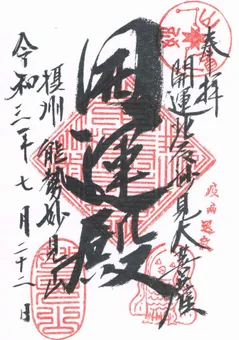 奉拝
開運北辰妙見大菩薩
開運殿
疫病退散
摂州能勢妙見山
令和三年七月二十二日